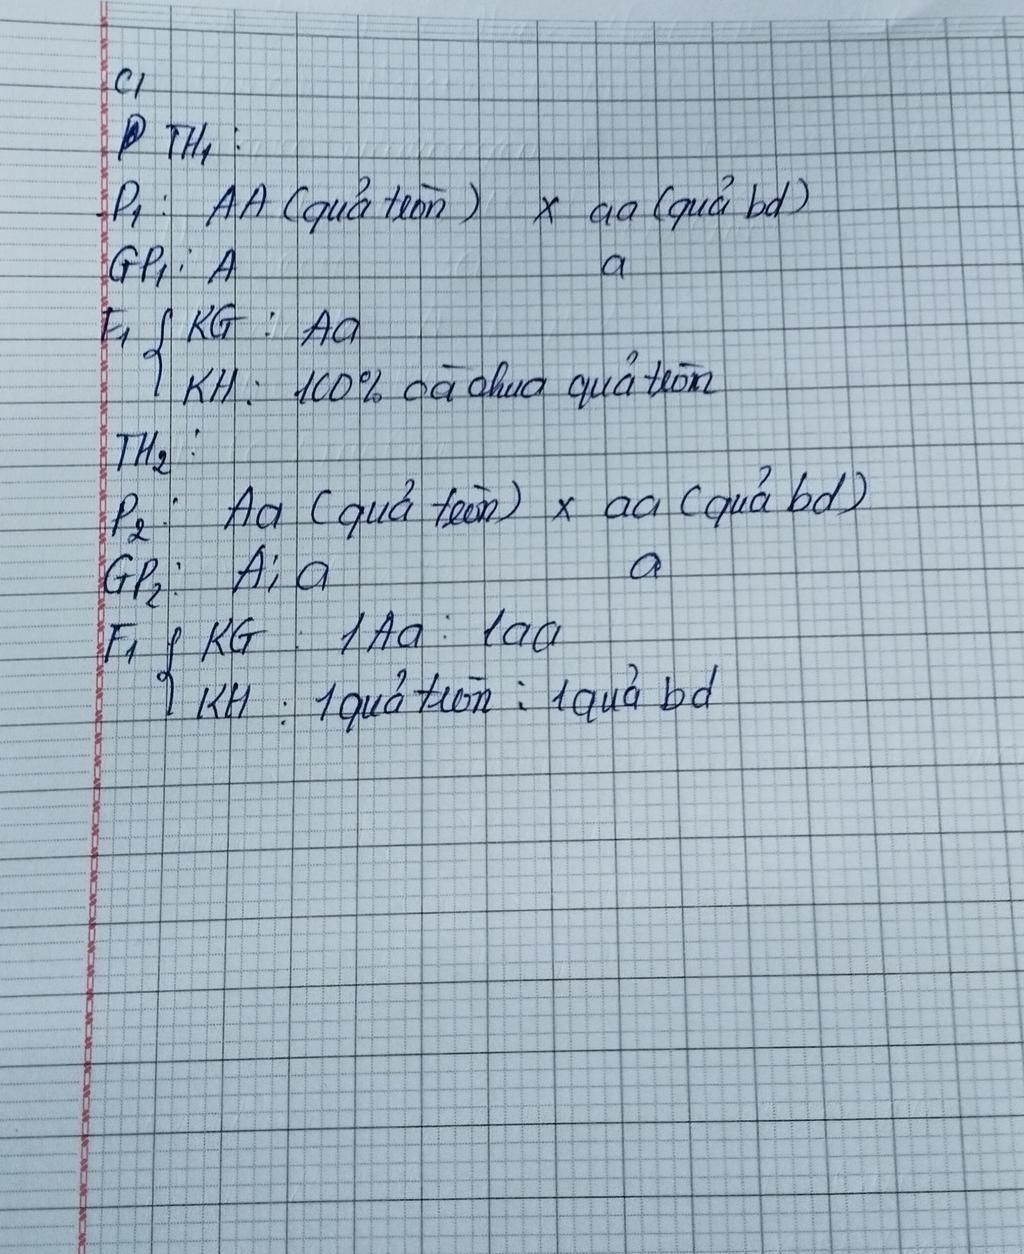 C1
TH1:
P1: AA (quả tròn) x aa (quả bd)
GP1: A a
F1 { KG: Aa
KH: 100% cà chua quả tròn
TH2:
P2: Aa (quả tròn) x aa (quả bd)
GP2: A; a a
F1 { KG: 1Aa: 1aa
KH: 1quả tròn: 1quả bd